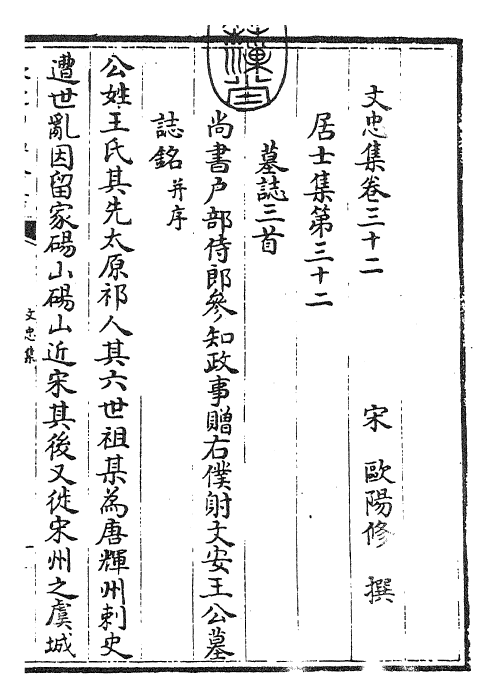 文忠集卷三十二
宋 歐陽修 撰
居士集第三十二
墓誌三首
尚書户部侍郎參知政事贈右僕射文安王公墓
誌銘并序
公姓王氏其先太原祁人其六世祖某為唐輝州刺史
遭世亂因留家碭山碭山近宋其後又徙宋州之虞城
文忠集